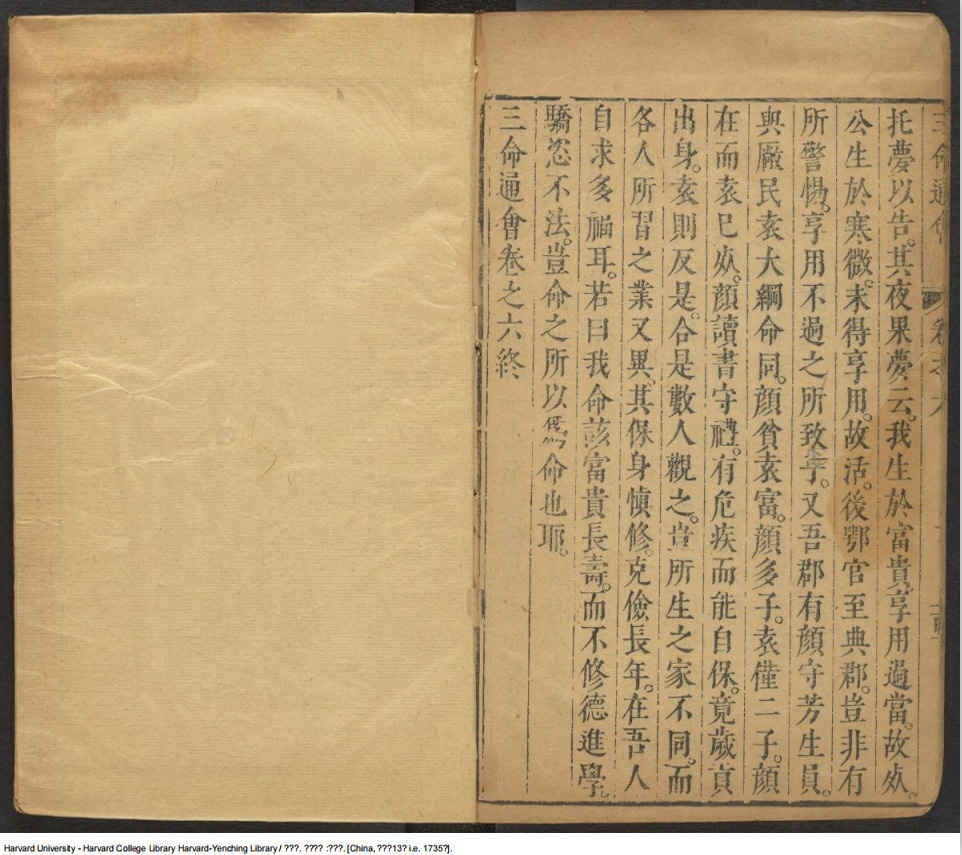 三命通會 卷之六
托夢以告。其夜果夢云。我生於富貴。享用過當。故𣦸。
公生於寒微。未得享用。故活。後鄂官至典郡。豈非有
所警惕。享用不過之所致乎。又吾郡有顏守芳生員。
與厰民袁大綱命同。顏貧袁富。顏多子。袁僅二子。顏
在而袁已𣦸。顏讀書守禮。有危疾而能自保。竟歲貢
出身。袁則反是。合是數人觀之。豈所生之家不同。而
各人所習之業又異。其保身慎修。克儉長年。在吾人
自求多福耳。若曰我命該富貴長壽。而不修德進學。
驕恣不法。豈命之所以爲命也耶。
三命通會卷之六終
Harvard University - Harvard College Library Harvard-Yenching Library / ???. ???? :???. [China, ???13? i.e. 1735?].